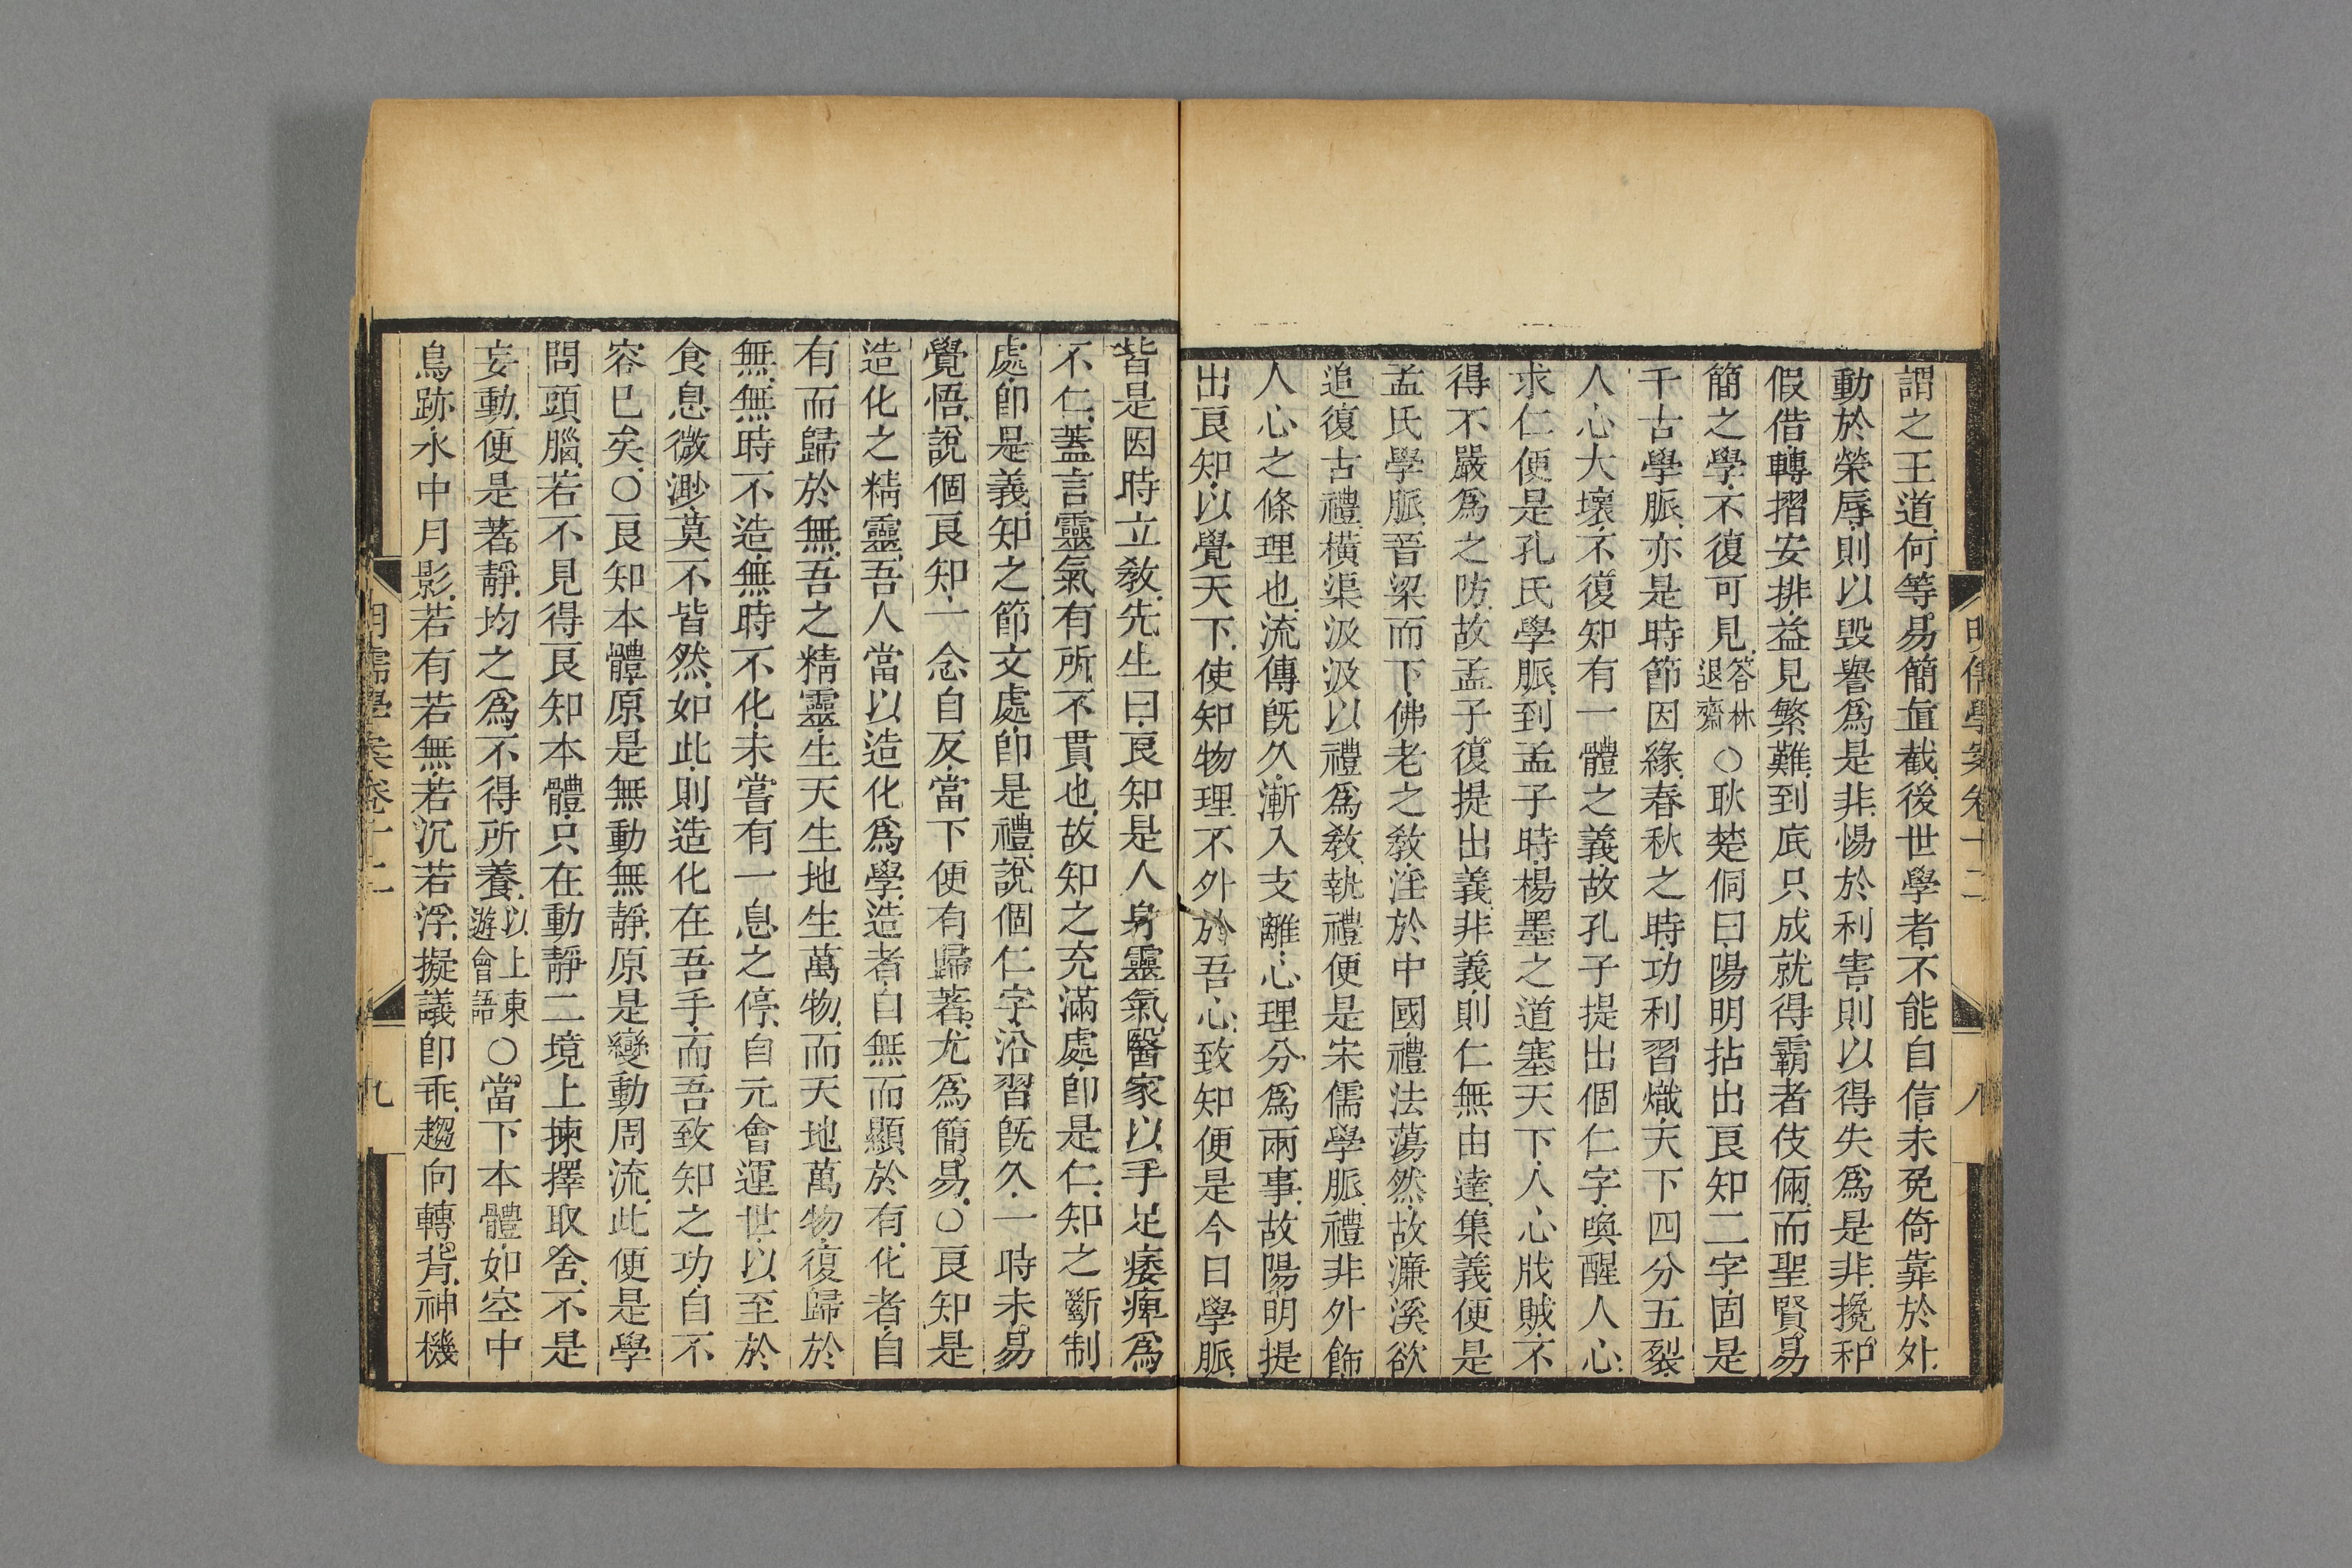 明儒學案卷十二
八
謂之王道何等易簡直截後世學者不能自信未免倚靠於外
動於榮辱則以毀譽爲是非惕於利害則以得失爲是非攙和
假借轉摺安排益見繁難到底只成就得霸者伎倆而聖賢易
簡之學不復可見答林退齋○耿楚侗曰陽明拈出良知二字固是
千古學脈亦是時節因緣春秋之時功利習熾天下四分五裂
人心大壞不復知有一體之義故孔子提出個仁字喚醒人心
求仁便是孔氏學脈到孟子時楊墨之道塞天下人心戕賊不
得不嚴爲之防故孟子復提出義非義則仁無由達集義便是
孟氏學脈晉梁而下佛老之敎淫於中國禮法蕩然故濂溪欲
追復古禮橫渠汲汲以禮爲敎執禮便是宋儒學脈禮非外飾
人心之條理也流傳旣久漸入支離心理分爲兩事故陽明提
出良知以覺天下使知物理不外於吾心致知便是今日學脈
皆是因時立敎先生曰良知是人身靈氣醫家以手足痿痺爲
不仁蓋言靈氣有所不貫也故知之充滿處卽是仁知之斷制
處卽是義知之節文處卽是禮說個仁字沿習旣久一時未易
覺悟說個良知一念自反當下便有歸著尤爲簡易○良知是
造化之精靈吾人當以造化爲學造者自無而顯於有化者自
有而歸於無吾之精靈生天生地生萬物而天地萬物復歸於
無無時不造無時不化未嘗有一息之停自元會運世以至於
食息微渺莫不皆然如此則造化在吾手而吾致知之功自不
容已矣○良知本體原是無動無靜原是變動周流此便是學
問頭腦若不見得良知本體只在動靜二境上揀擇取舍不是
妄動便是著靜均之爲不得所養以上東遊會語○當下本體如空中
鳥跡水中月影若有若無若沉若浮擬議卽乖趨向轉背神機
明儒學案卷十二
九